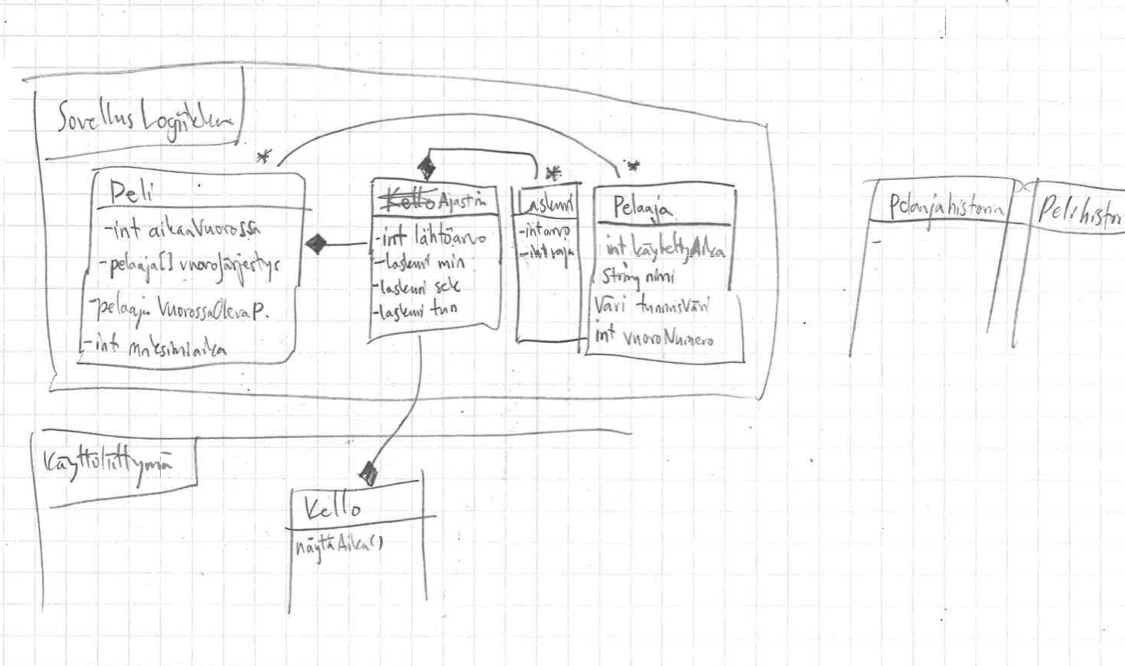 Sovellus Logiikka
*
*
*
Peli
-int aikaaVuorossa
-pelaaja[] vuoroJärjestys
-pelaaja VuorossaOlevaP.
-int maksimiaika
Kello Ajastin
-int lähtöarvo
-laskuri min
-laskuri sek
-laskuri tun
Laskuri
-int arvo
-int raja
Pelaaja
int käytettyAika
String nimi
Väri tunnusVäri
int vuoroNumero
Pelaajahistoria
-
Pelihistor
Käyttöliittymä
Kello
näytäAika()